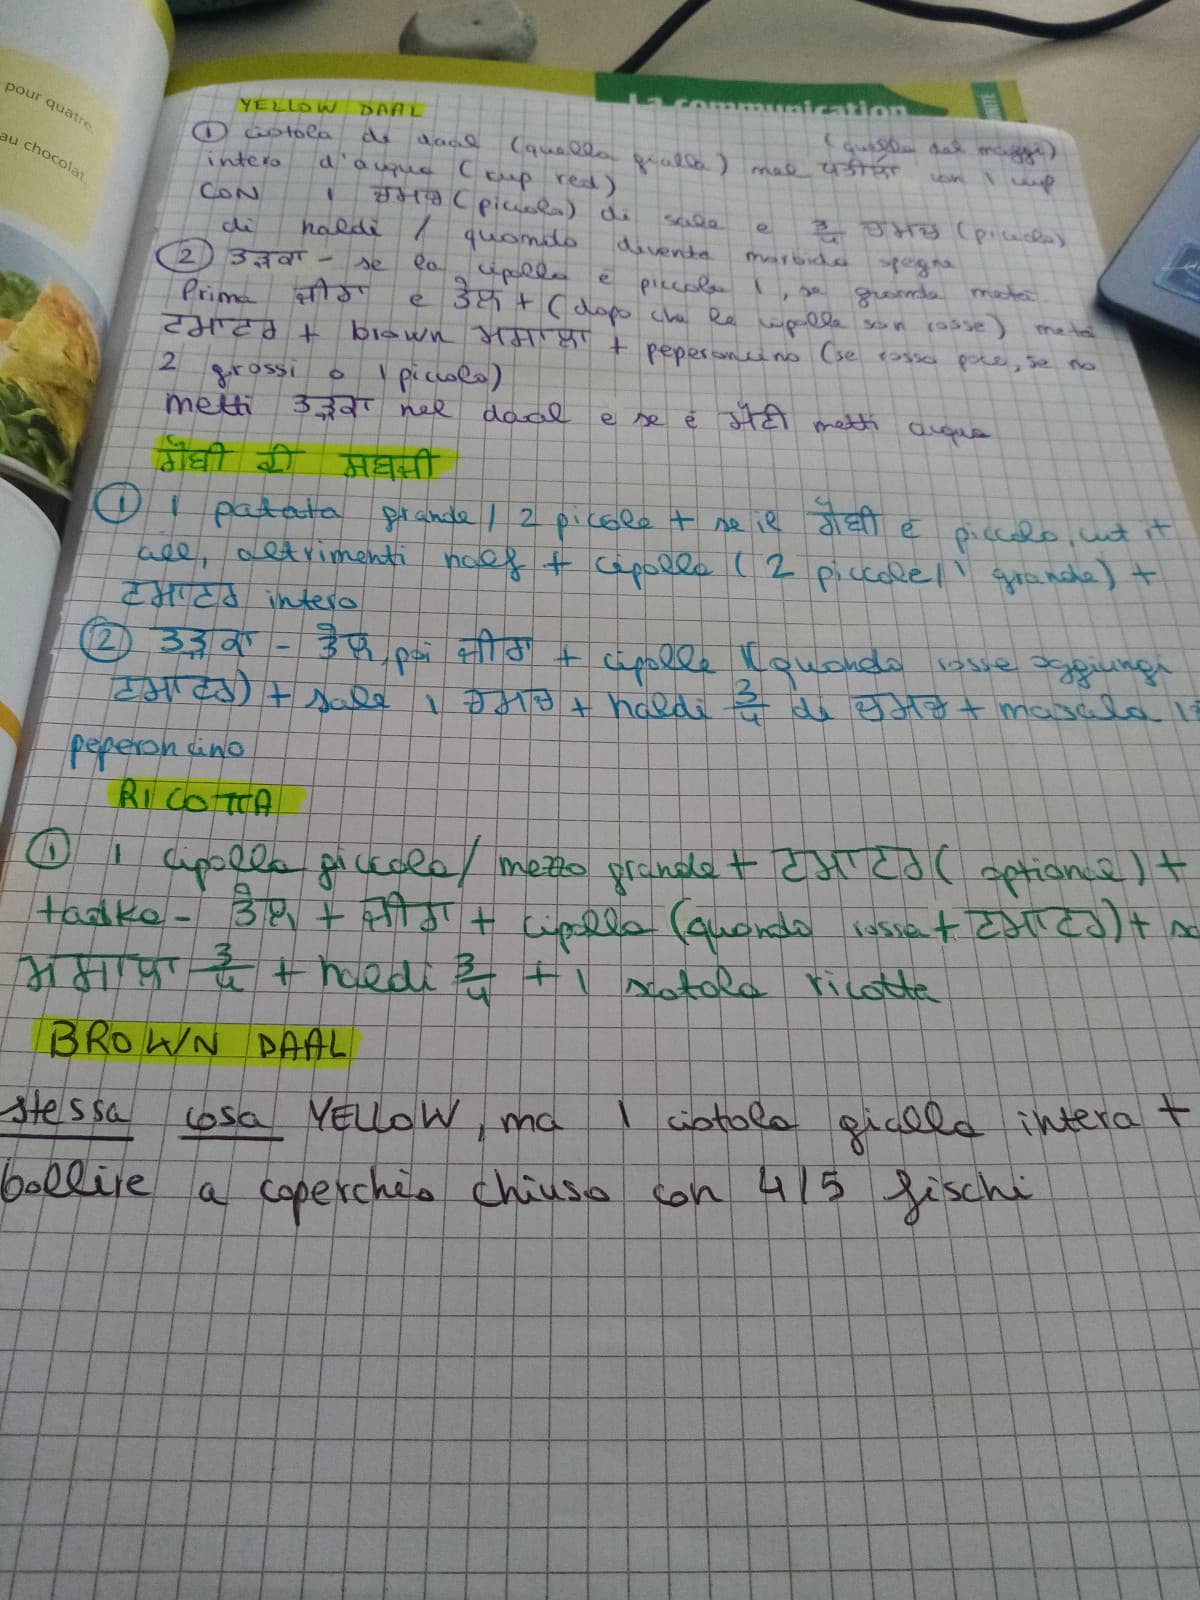 pour quatre
au chocolat.
La communication
UNITÉ
YELLOW DAAL
① ciotola di daal (quella gialla) nel पतीला con 1 cup (quella dal maggi)
intero d'acqua (cup red)
CON 1 चमच (piccolo) di sale e 3/4 चमच (piccolo)
di haldi / quando diventa morbida spegne
② तड़का - se la cipolla è piccola 1, se grande metà.
Prima जीरा e तेल + (dopo che le cipolle son rosse) metà
टमाटर + brown मसाला + peperoncino (se rosso poco, se no
2 grossi o 1 piccolo)
metti तड़का nel daal e se è मोटी metti acqua
मेथी की सबजी
① 1 patata grande / 2 piccole + se il मेथी è piccolo, cut it
all, altrimenti half + cipolla (2 piccole / 1 grande) +
टमाटर intero
② तड़का - तेल, poi जीरा + cipolle (quando rosse aggiungi
टमाटर) + sale 1 चमच + haldi 3/4 di चमच + masala 1 +
peperoncino
RICOTTA
① 1 cipolla piccola / mezzo grande + टमाटर (optional) +
tadka - तेल + जीरा + cipolla (quando rossa + टमाटर) +
मसाला 3/4 + haldi 3/4 + 1 scatola ricotta
BROWN DAAL
stessa cosa YELLOW, ma 1 ciotola gialla intera +
bollire a coperchio chiuso con 4/5 fischi